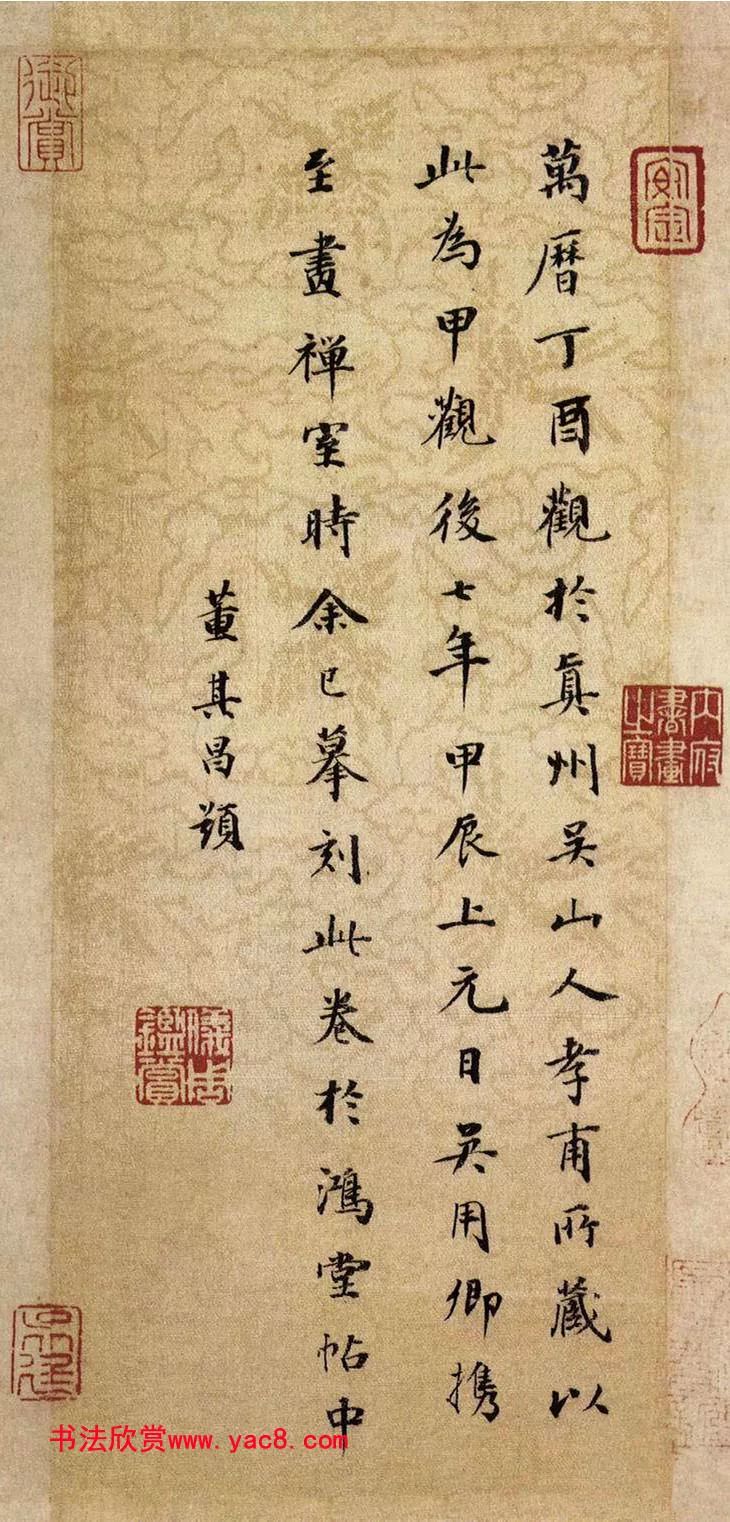 萬曆丁酉觀於真州吳山人孝甫所藏以
此為甲觀後七年甲辰上元日吳用卿携
至畫禪室時余已摹刻此卷於鴻堂帖中
董其昌題
御賞
內府書畫之寶
鑑賞
书法欣赏www.yac8.com